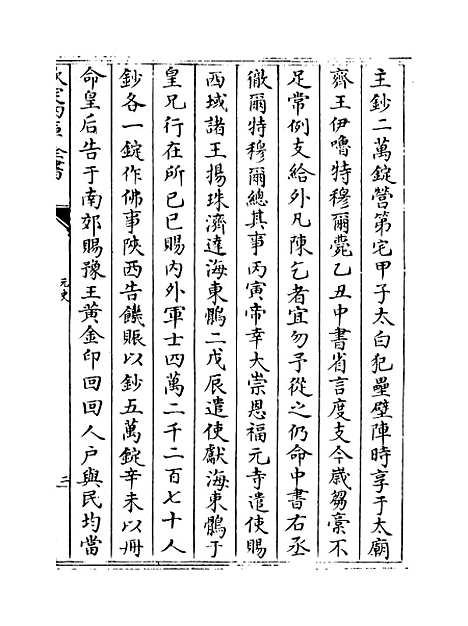 主鈔二萬錠營第宅甲子太白犯壘壁陣時享于太廟
齊王伊嚕特穆爾薨乙丑中書省言度支今嵗芻藁不
足常例支給外凡陳乞者宜勿予從之仍命中書右丞
徹爾特穆爾總其事丙寅帝幸大崇恩福元寺遣使賜
西域諸王揚珠濟達海東鶻二戊辰遣使獻海東鶻于
皇兄行在所己巳賜内外軍士四萬二千二百七十人
鈔各一錠作佛事陜西告饑賑以鈔五萬錠辛未以冊
命皇后告于南郊賜豫王黄金印回回人户與民均當
元史
三